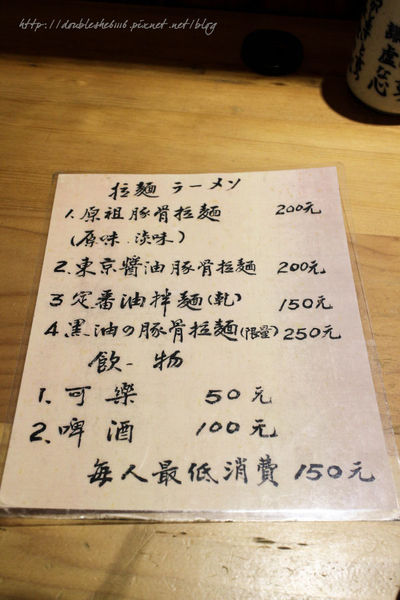 http://doubleshe6116.pixnet.net/blog
拉麵 ラーメン
1. 原祖豚骨拉麵 200元
(原味.淡味)
2. 東京醬油豚骨拉麵 200元
3 定番油拌麵(乾) 150元
4. 黑油の豚骨拉麵(限量) 250元
飲-物
1. 可樂 50元
2. 啤酒 100元
每人最低消費 150元